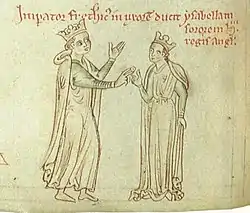 Imperator fretheric' in uxorẽ ducit ysabellam
sororem h.
regis angl'.